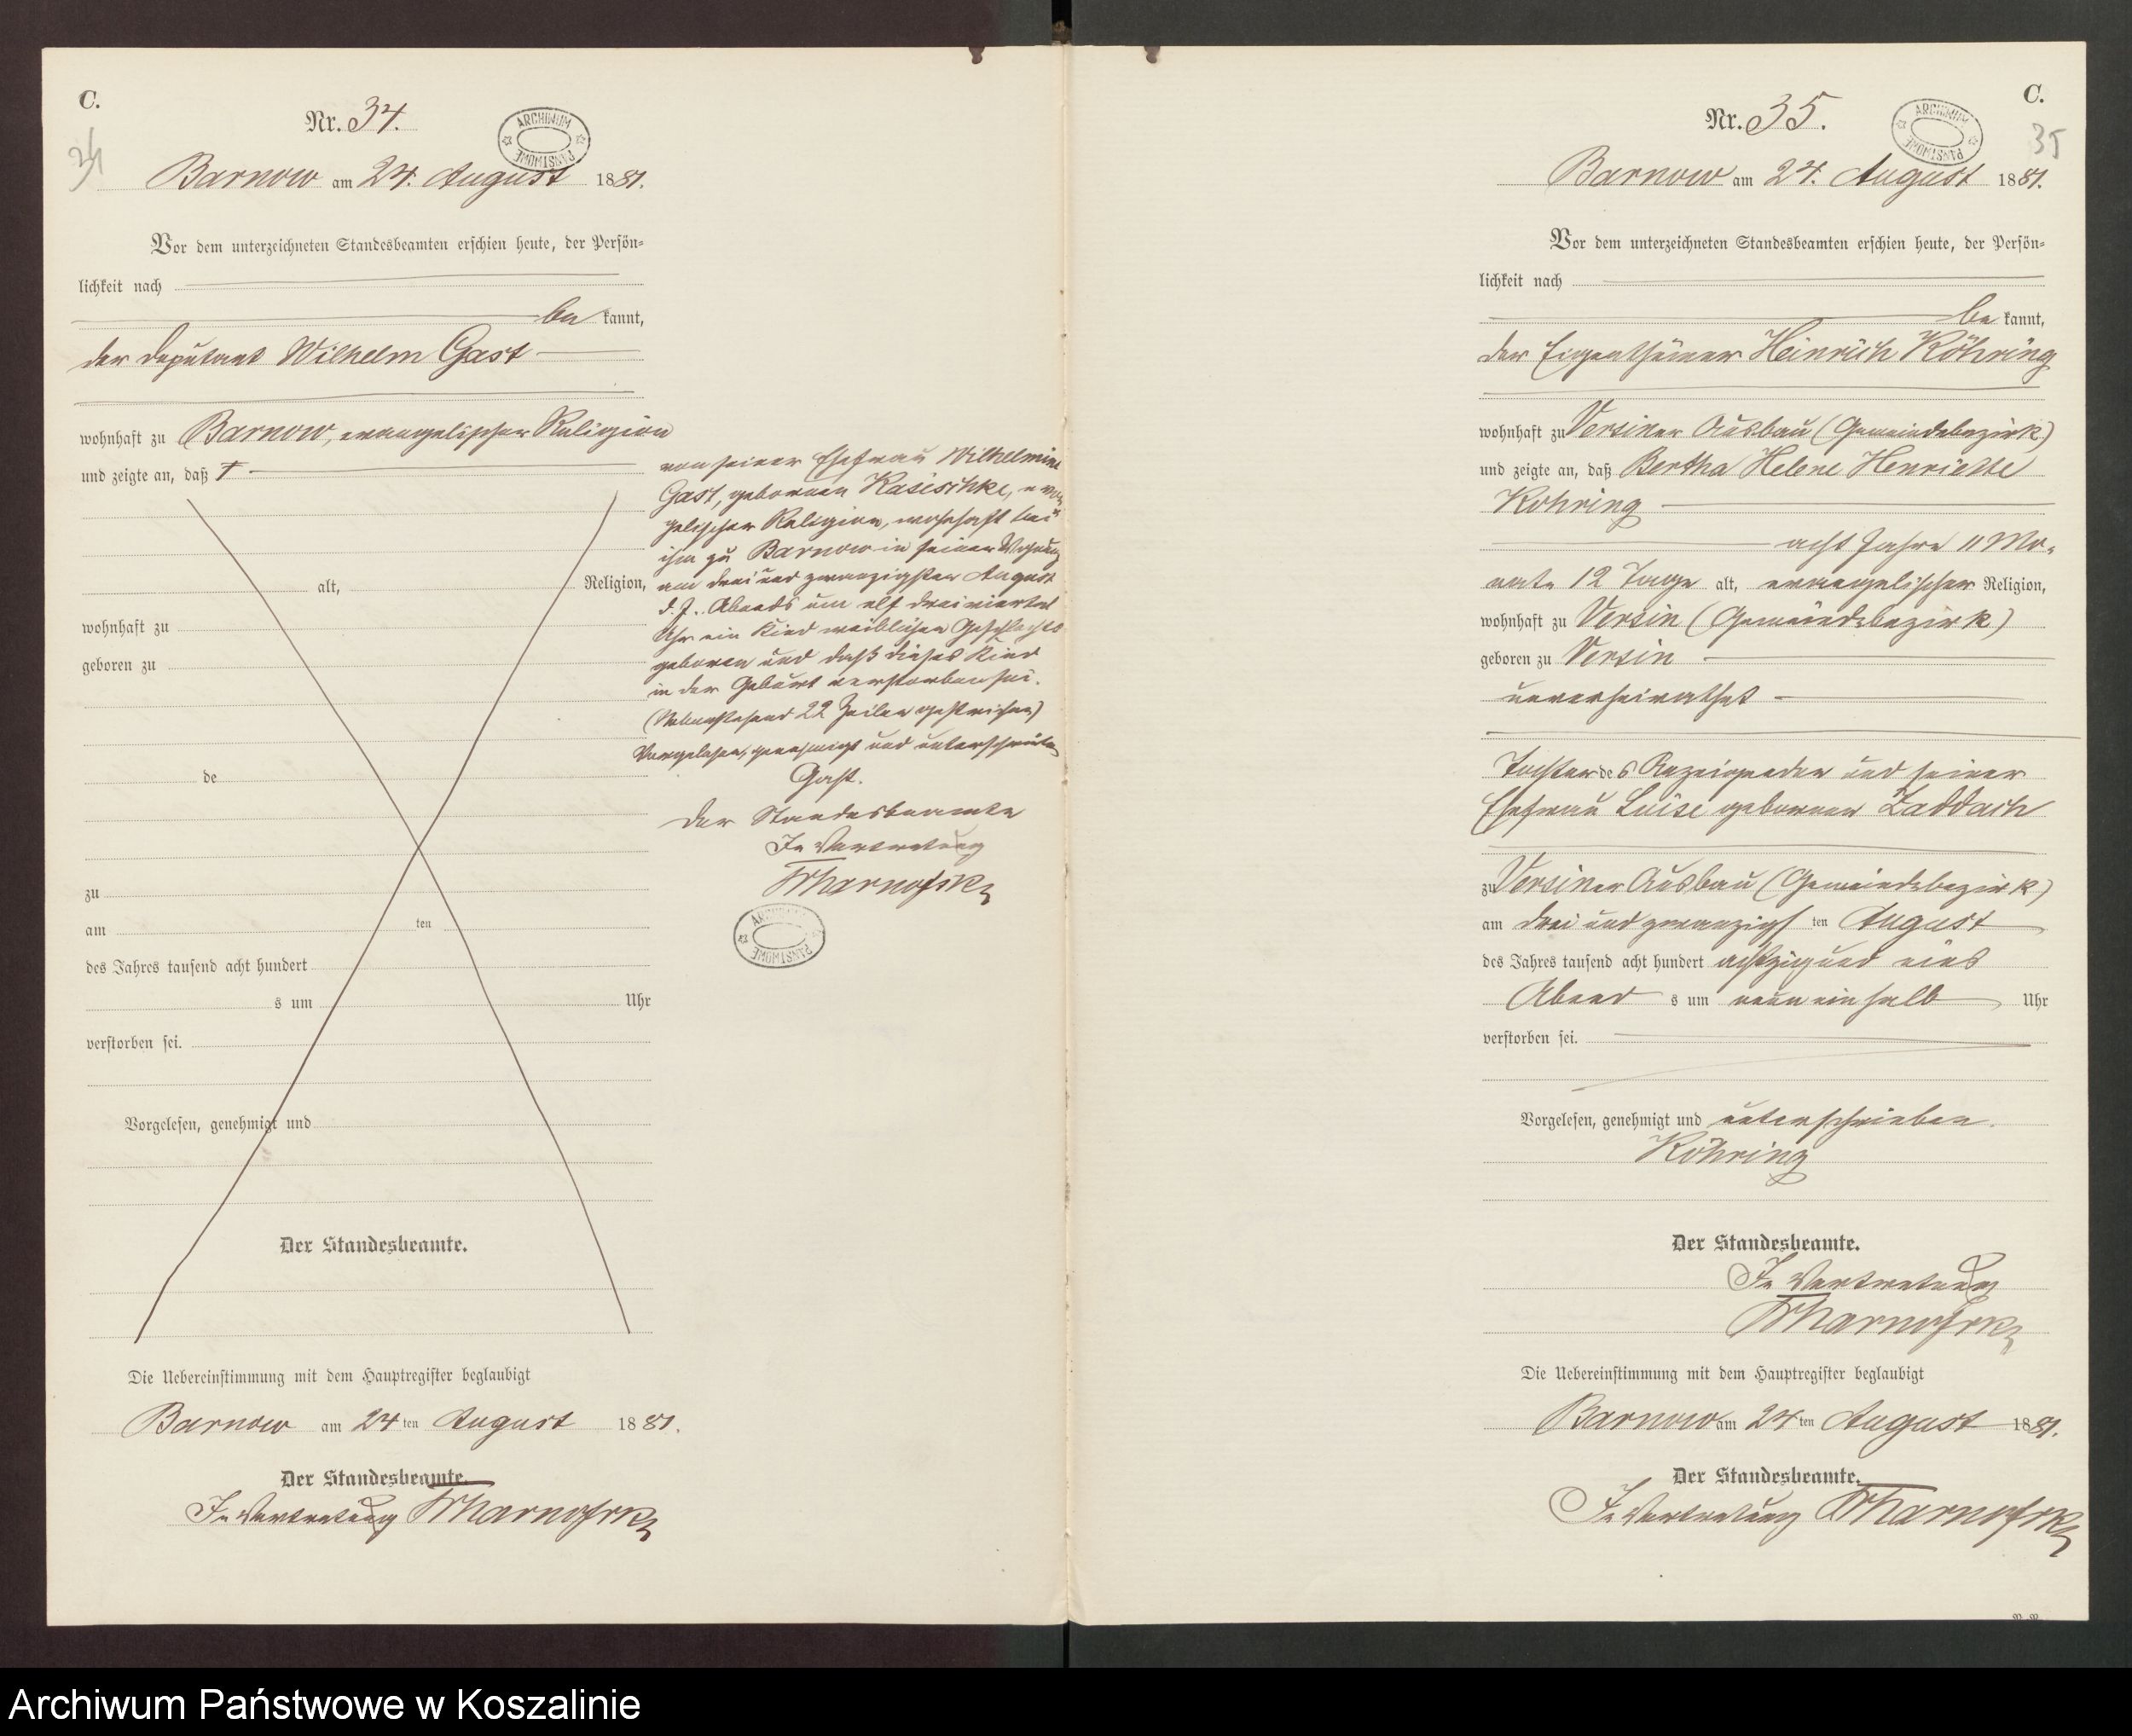 C.
34
Nr. 34.
ARCHIWUM PAŃSTWOWE
Barnow am 24. August 1881.
Vor dem unterzeichneten Standesbeamten erschien heute, der Persön-
lichkeit nach
be kannt,
der Deputant Wilhelm Gast
wohnhaft zu Barnow, evangelischer Religion
und zeigte an, daß †
alt, Religion,
wohnhaft zu
geboren zu
de
zu
am ten
des Jahres tausend acht hundert
s um Uhr
verstorben sei.
Vorgelesen, genehmigt und
Der Standesbeamte.
von seiner Ehefrau Wilhelmine
Gast, geborenen Kasischke, evan
gelischer Religion, wohnhaft bei
ihm zu Barnow in seiner Wohnung
am drei und zwanzigsten August
d. J. Abends um elf dreiviertel
Uhr ein Kind weiblichen Geschlechts
geboren und daß dieses Kind
in der Geburt verstorben sei.
(Nebenstehend 22 Zeilen gestrichen)
Vorgelesen, genehmigt und unterschrieben
Gast.
Der Standesbeamte
In Vertretung
ARCHIWUM PAŃSTWOWE
Die Uebereinstimmung mit dem Hauptregister beglaubigt
Barnow am 24 ten August 1881.
Der Standesbeamte.
In Vertretung
C.
35
Nr. 35.
ARCHIWUM PAŃSTWOWE
Barnow am 24. August 1881.
Vor dem unterzeichneten Standesbeamten erschien heute, der Persön-
lichkeit nach
be kannt,
der Eigenthümer Heinrich Köhring
wohnhaft zu Versiner Ausbau (Gemeindebezirk)
und zeigte an, daß Bertha Helene Henriette
Kohring
acht Jahre 11 Mo-
nate 12 Tage alt, evangelischer Religion,
wohnhaft zu Versin (Gemeindebezirk)
geboren zu Versin
unverheirathet
Tochter des Anzeigenden und seiner
Ehefrau Luise geborenen Zaddach
zu Versiner Ausbau (Gemeindebezirk)
am drei und zwanzigs ten August
des Jahres tausend acht hundert achtzig und eins
Abend s um neun ein halb Uhr
verstorben sei.
Vorgelesen, genehmigt und unterschrieben.
Köhring
Der Standesbeamte.
In Vertretung
Die Uebereinstimmung mit dem Hauptregister beglaubigt
Barnow am 24 ten August 1881.
Der Standesbeamte.
In Vertretung
Archiwum Państwowe w Koszalinie